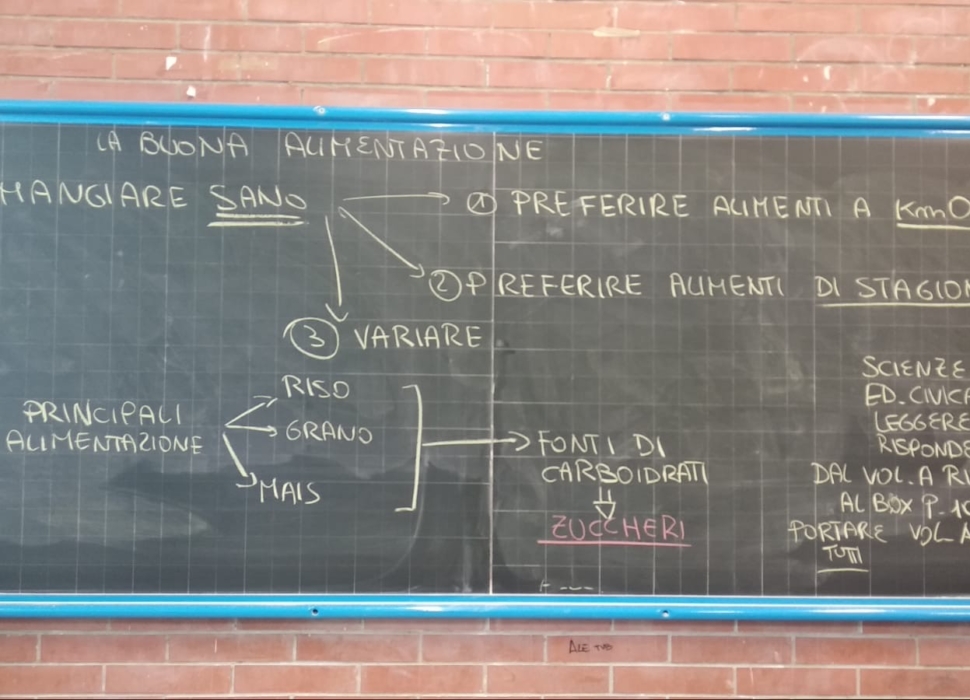 LA BUONA ALIMENTAZIONE
MANGIARE SANO
① PREFERIRE ALIMENTI A Km0
② PREFERIRE ALIMENTI DI STAGION
③ VARIARE
PRINCIPALI
ALIMENTAZIONE
RISO
GRANO
MAIS
FONTI DI
CARBOIDRATI
ZUCCHERI
SCIENZE
ED. CIVICA
LEGGERE
RISPONDE
DAL VOL. A RI
AL BOX P. 10
PORTARE VOL A
TUTTI